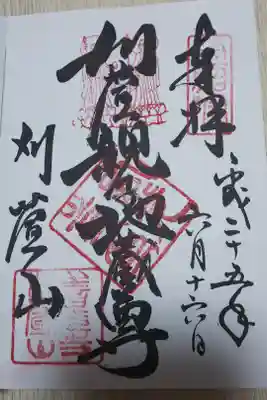 奉拝
平成二十五年
六月十六日
刈萱親子地蔵尊
刈萱山